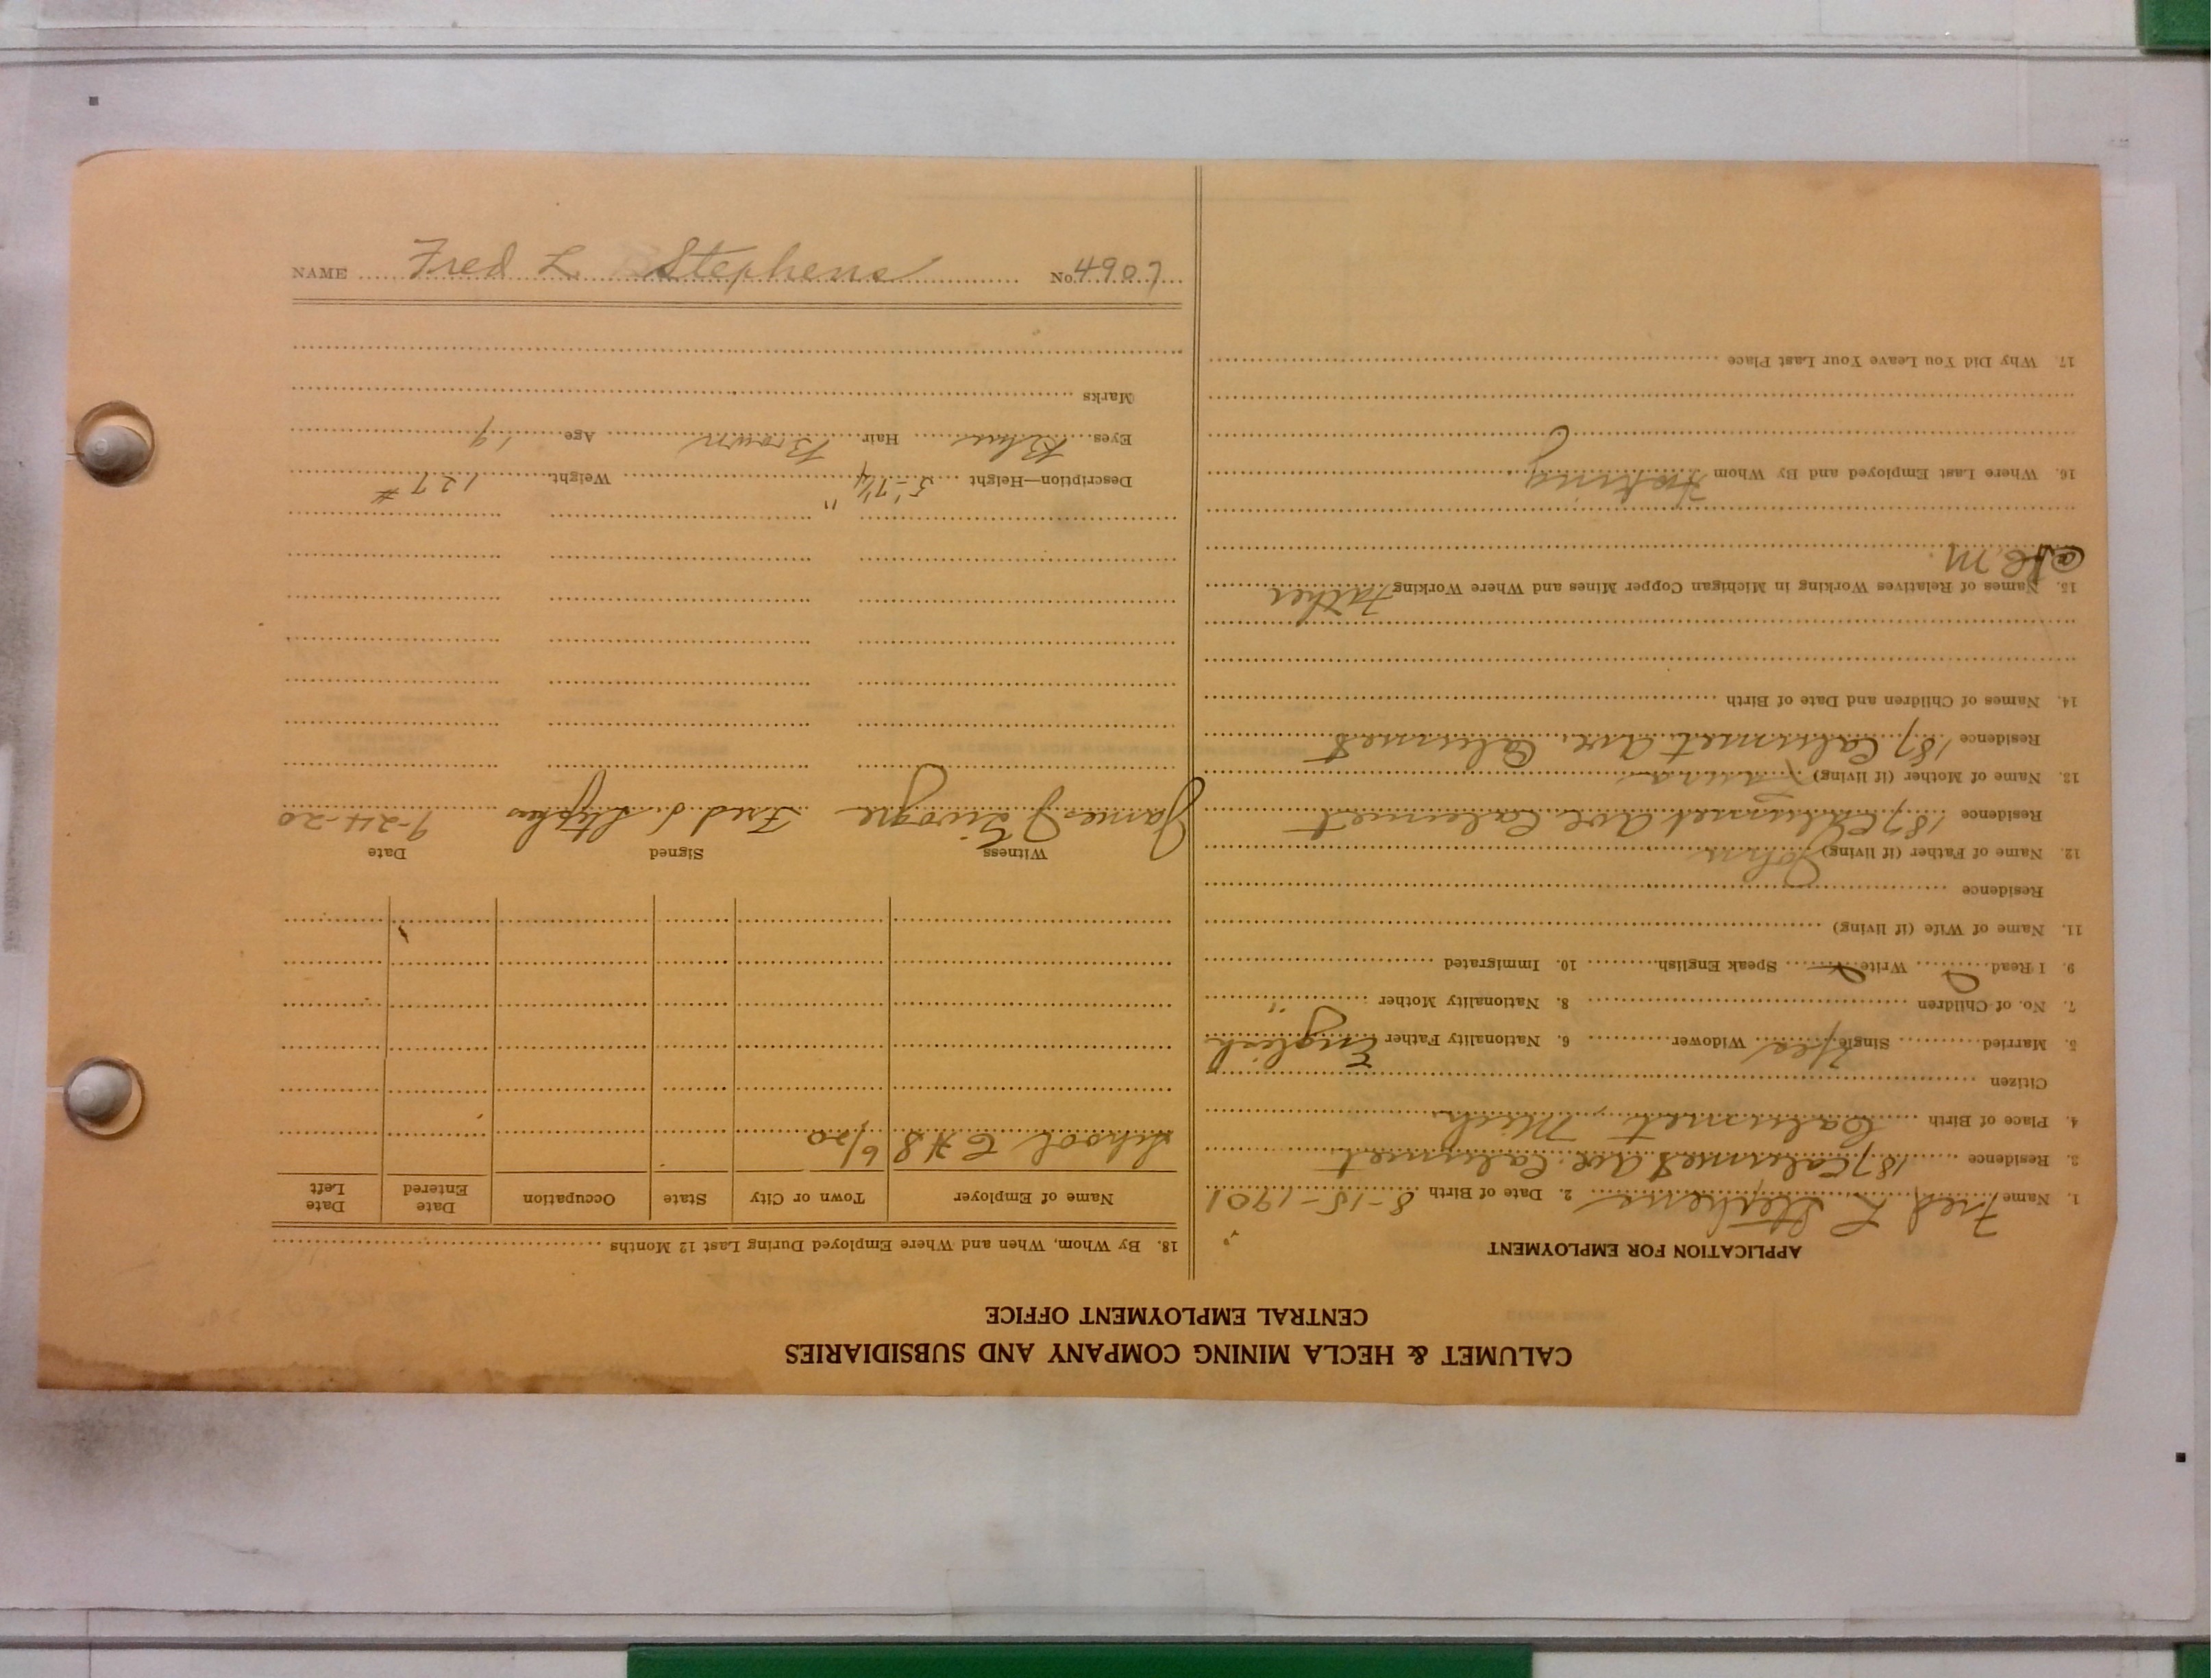 CALUMET & HECLA MINING COMPANY AND SUBSIDIARIES
CENTRAL EMPLOYMENT OFFICE
APPLICATION FOR EMPLOYMENT
1. Name Fred L Stephens 2. Date of Birth 8-15-1901
3. Residence 187 Calumet Ave. Calumet
4. Place of Birth Calumet, Mich.
Citizen
5. Married Single Yes Widower 6. Nationality Father English
7. No. of Children 8. Nationality Mother "
9. I Read Write Speak English 10. Immigrated
11. Name of Wife (if living)
Residence
12. Name of Father (if living) John
Residence 187 Calumet Ave Calumet
13. Name of Mother (if living)
Residence 187 Calumet Ave. Calumet
14. Names of Children and Date of Birth
15. Names of Relatives Working in Michigan Copper Mines and Where Working Father
16. Where Last Employed and By Whom
17. Why Did You Leave Your Last Place
18. By Whom, When and Where Employed During Last 12 Months
Name of Employer Town or City State Occupation Date Entered Date Left
School C H S 6/20
Witness Signed Date
James J. Fred L. Stephens 9-24-20
Description—Height 5'-7 1/4" Weight 127 #
Eyes Blue Hair Brown Age 19
Marks
NAME Fred L. Stephens No. 4907